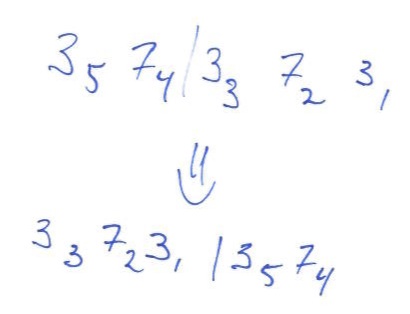 3₅ 7₄ | 3₃ 7₂ 3₁
⇓
3₃ 7₂ 3₁ | 3₅ 7₄